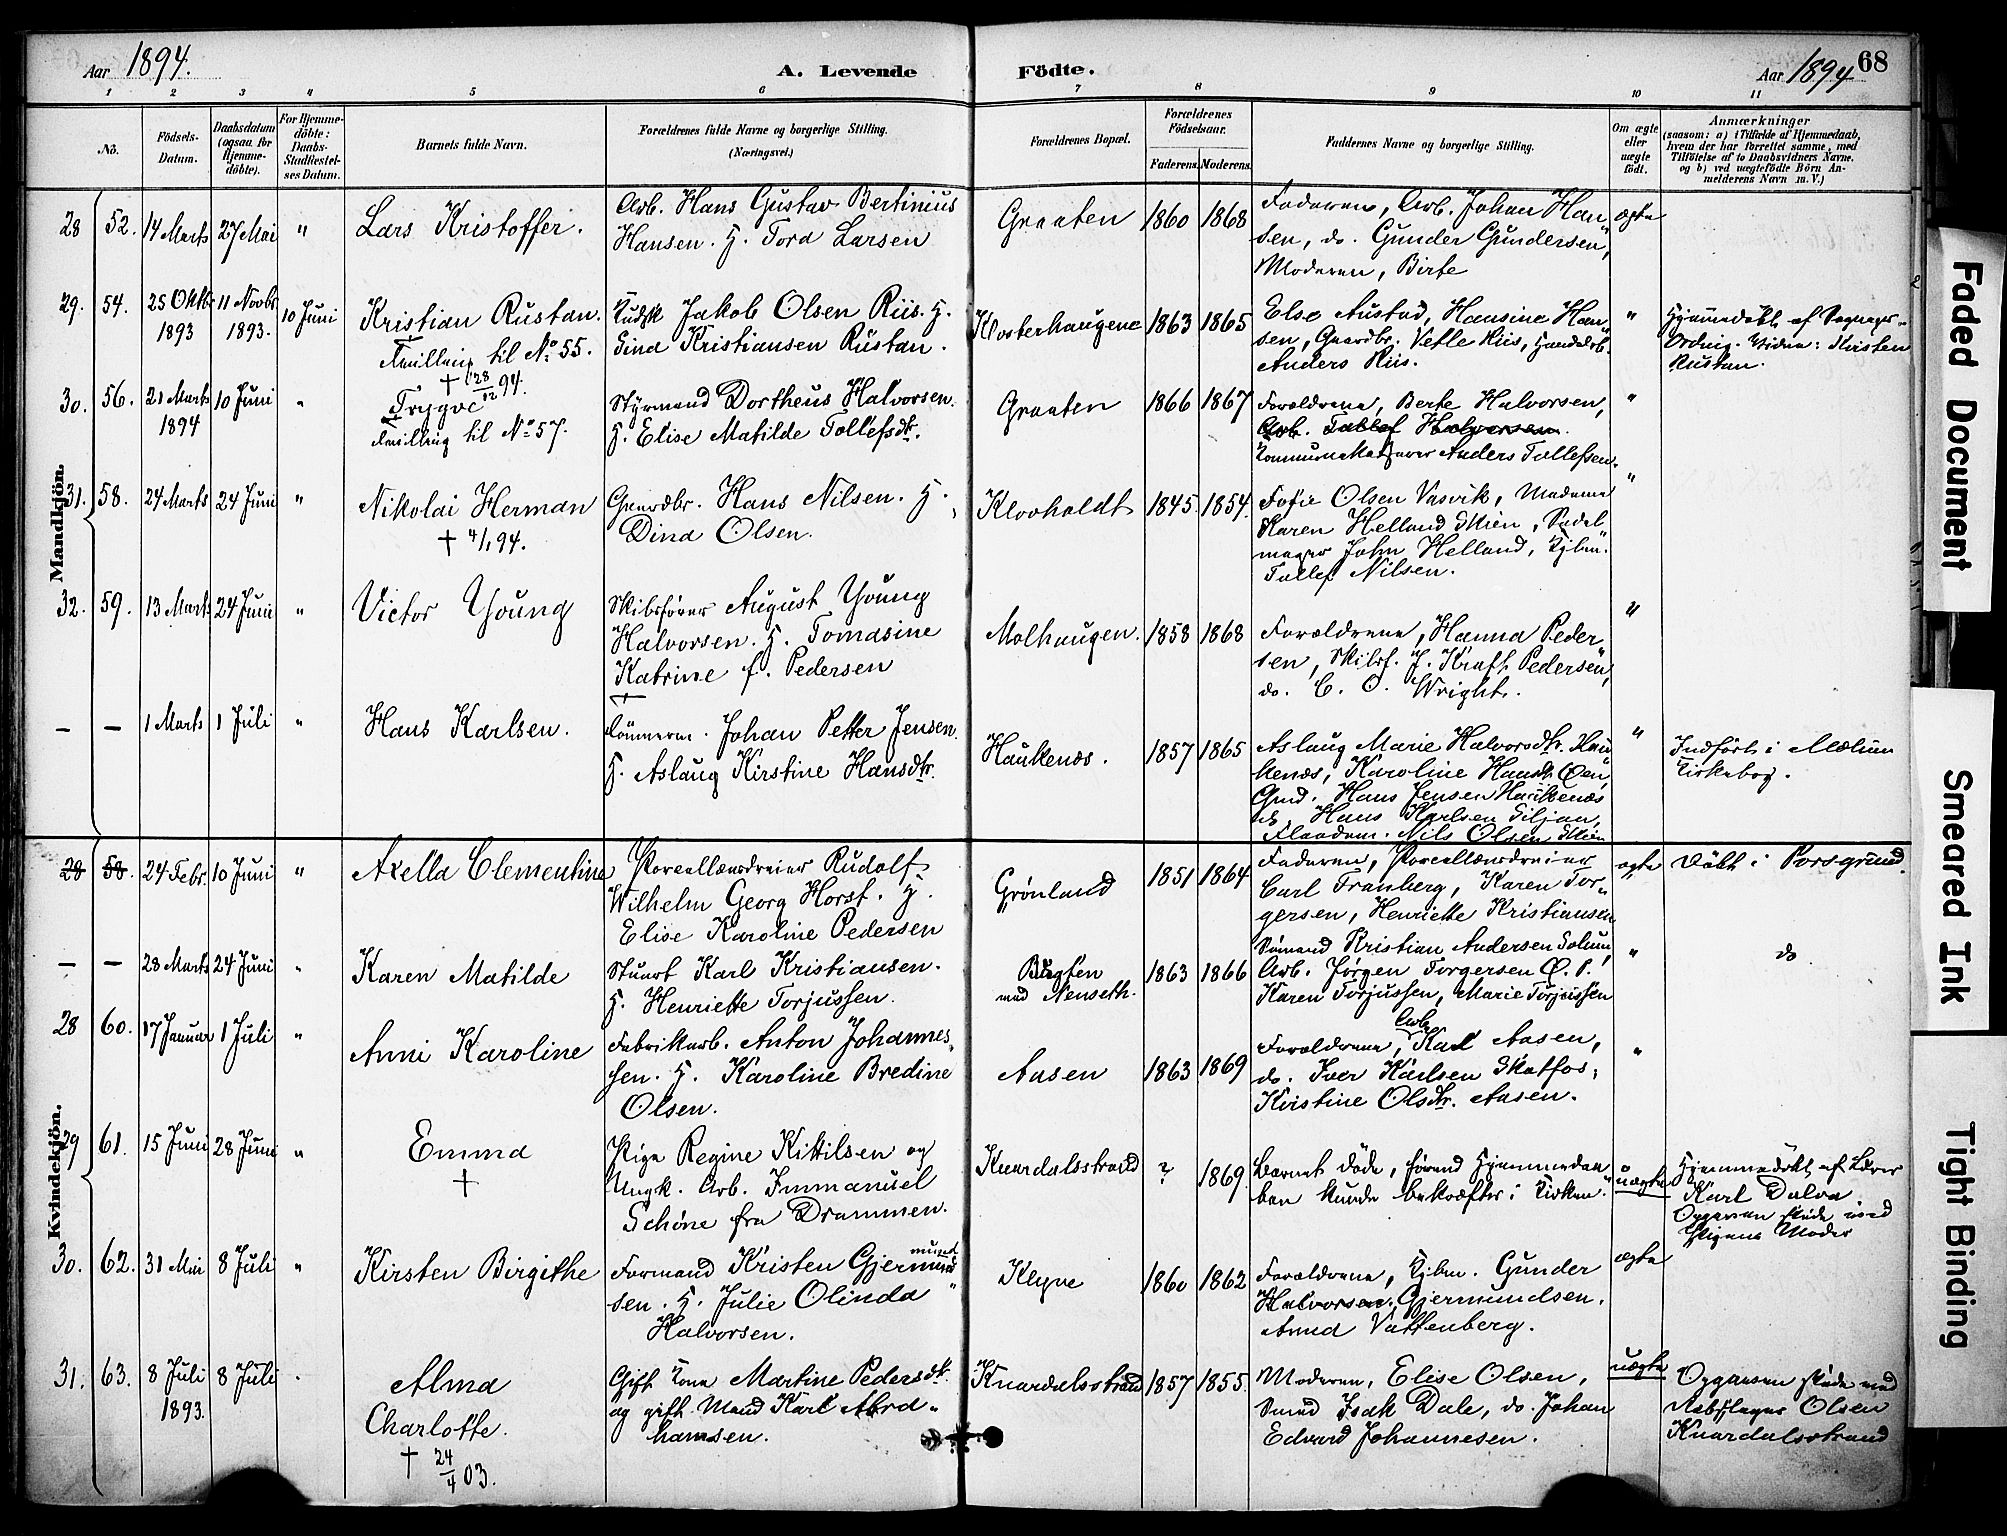 Aar 1894.
A. Levende Födte.
Aar 1894
68
1 2 3 4 5 6 7 8 9 10 11
No.
Födsels-
Datum.
Daabsdatum
(ogsaa for
Hjemme-
döbte).
For Hjemme-
döbte:
Daabs-
Stadfæstel-
ses Datum.
Barnets fulde Navn.
Forældrenes fulde Navne og borgerlige Stilling.
(Næringsvei.)
Forældrenes Bopæl.
Forældrenes
Födselsaar.
Faderens. Moderens.
Faddernes Navne og borgerlige Stilling.
Om ægte
eller
uægte
födt.
Anmærkninger
(saasom: a) i Tilfælde af Hjemmedaab,
hvem der har forrettet samme, med
Tilföielse af to Daabsvidners Navne,
og b) ved uægtefödte Börn An-
melderens Navn m. V.)
Mandkjön.
28 52. 14 Marts 27 Mai "
Lars Kristoffer.
Arb. Hans Gustav Bertinius
Hansen. H. Tora Larsen
Graaten 1860 1868
Faderen, Arb. Johan Han
sen, do. Gunder Gundersen,
Moderen, Birte
ægte
29. 54. 25 Oktbr 1893 11 Novbr 1893. 10 Juni
Kristian Rustan.
Tvilling til No 55.
+ 28/12 94.
Kudsk Jakob Olsen Riis. H.
Gina Kristiansen Rustan.
Klosterhaugene 1863 1865
Else Austad, Hansine Han
sen, Gaardbr. Vetle Riis, Handelsb.
Anders Riis.
"
Hjemmedøbt af
Kirsten
Rustan.
30. 56. 21 Marts 1894 10 Juni "
Trygve
Tvilling til No 57.
Styrmand Dortheus Halvorsen.
H. Elise Matilde Tollefsdtr.
Graaten 1866 1867
Forældrene, Berte Halvorsen,
Arb. Tollef Halvorsen.
Anders Tollefsen.
"
31. 58. 24 Marts 24 Juni "
Nikolai Herman
+ 4/1 94.
Gaardbr. Hans Nilsen. H.
Dina Olsen.
Klovholdt 1845 1854.
Fofie Olsen Vasvik, Madame
Karen Helland Skien, Sadel
mager John Helland, Kjbm.
Tallef Nilsen.
"
32. 59. 13 Marts 24 Juni "
Victor Young
Skibsfører August Young
Halvorsen. H. Tomasine
Katrine f. Pedersen
Molhaugen. 1858 1868
Forældrene, Hanna Peder
sen, Skibsf. J. Kraft Pedersen,
do. C. O. Wright.
"
— — 1 Marts 1 Juli "
Hans Karlsen.
Tømmerm. Johan Petter Jensen.
H. Aslaug Kirstine Hansdtr.
Haukenæs. 1857 1865
Aslaug Marie Halvorsdtr. Hau
kenæs, Karoline Hansdtr Øen,
Gmd. Hans Jensen Haukenæs
do Hans Karlsen Siljan,
Nils Olsen Skien
"
Indført i Mælum
Kirkebog.
Kvindekjön.
28 58. 24 Febr. 10 Juni "
Axella Clementine
Porcellænsdreier Rudolf
Wilhelm Georg Horst. H.
Elise Karoline Pedersen
Grønland 1851 1864
Faderen, Porcellænsdreier
Carl Franberg, Karen Tor-
gersen, Henriette Kristiansen
ægte
Døbt i Porsgrund.
— — 28 Marts 24 Juni "
Karen Matilde
Stuart Karl Kristiansen.
H. Henriette Torjussen.
Bugten
med Nenseth. 1863 1866
Sømand Kristian Andersen Solum,
Arb. Jørgen Torgersen Ø. P.
Karen Torjussen, Marie Torjussen
"
do
28 60. 17 Januar 1 Juli "
Anni Karoline
Fabrikarb. Anton Johannes,
sen. H. Karoline Bredine
Olsen.
Aasen 1863 1869
Forældrene, Arb. Karl Aasen,
do. Iver Karlsen Skotfos,
Kristine Olsdtr. Aasen.
"
29 61. 15 Juni 28 Juni "
Emma
+
Pige Regine Kittilsen og
Ungk. Arb. Immanuel
Schöne fra Drammen.
Knardalsstrand ? 1869
Barnet døde, førend Hjemmedaa
ben kunde bekræftes i Kirken.
uægte
Hjemmedøbt af Lærer
Karl Dalva.
Opgaven skede ved
Pigens Moder
30. 62. 31 Mai 8 Juli "
Kirsten Birgithe
Formand Kristen Gjermund
sen. H. Julie Olinda
Halvorsen.
Klyve 1860 1862
Forældrene, Kjbm. Gunder
Halvorsen, Gjermundsen.
Anna Vattenberg.
ægte
31. 63. 8 Juli 1893. 8 Juli "
Alma
Charlotte.
+ 24/4 03.
Gift Kone Martine Pedersdtr.
og gift Mand Karl Abra-
hamsen.
Knardalsstrand 1857 1855.
Moderen, Elise Olsen,
Smed Isak Dale, do. Johan
Edvard Johannesen.
uægte
Opgaven skede ved
Rebslager Olsen
Knardalsstrand
Faded Document
Smeared Ink
Tight Binding